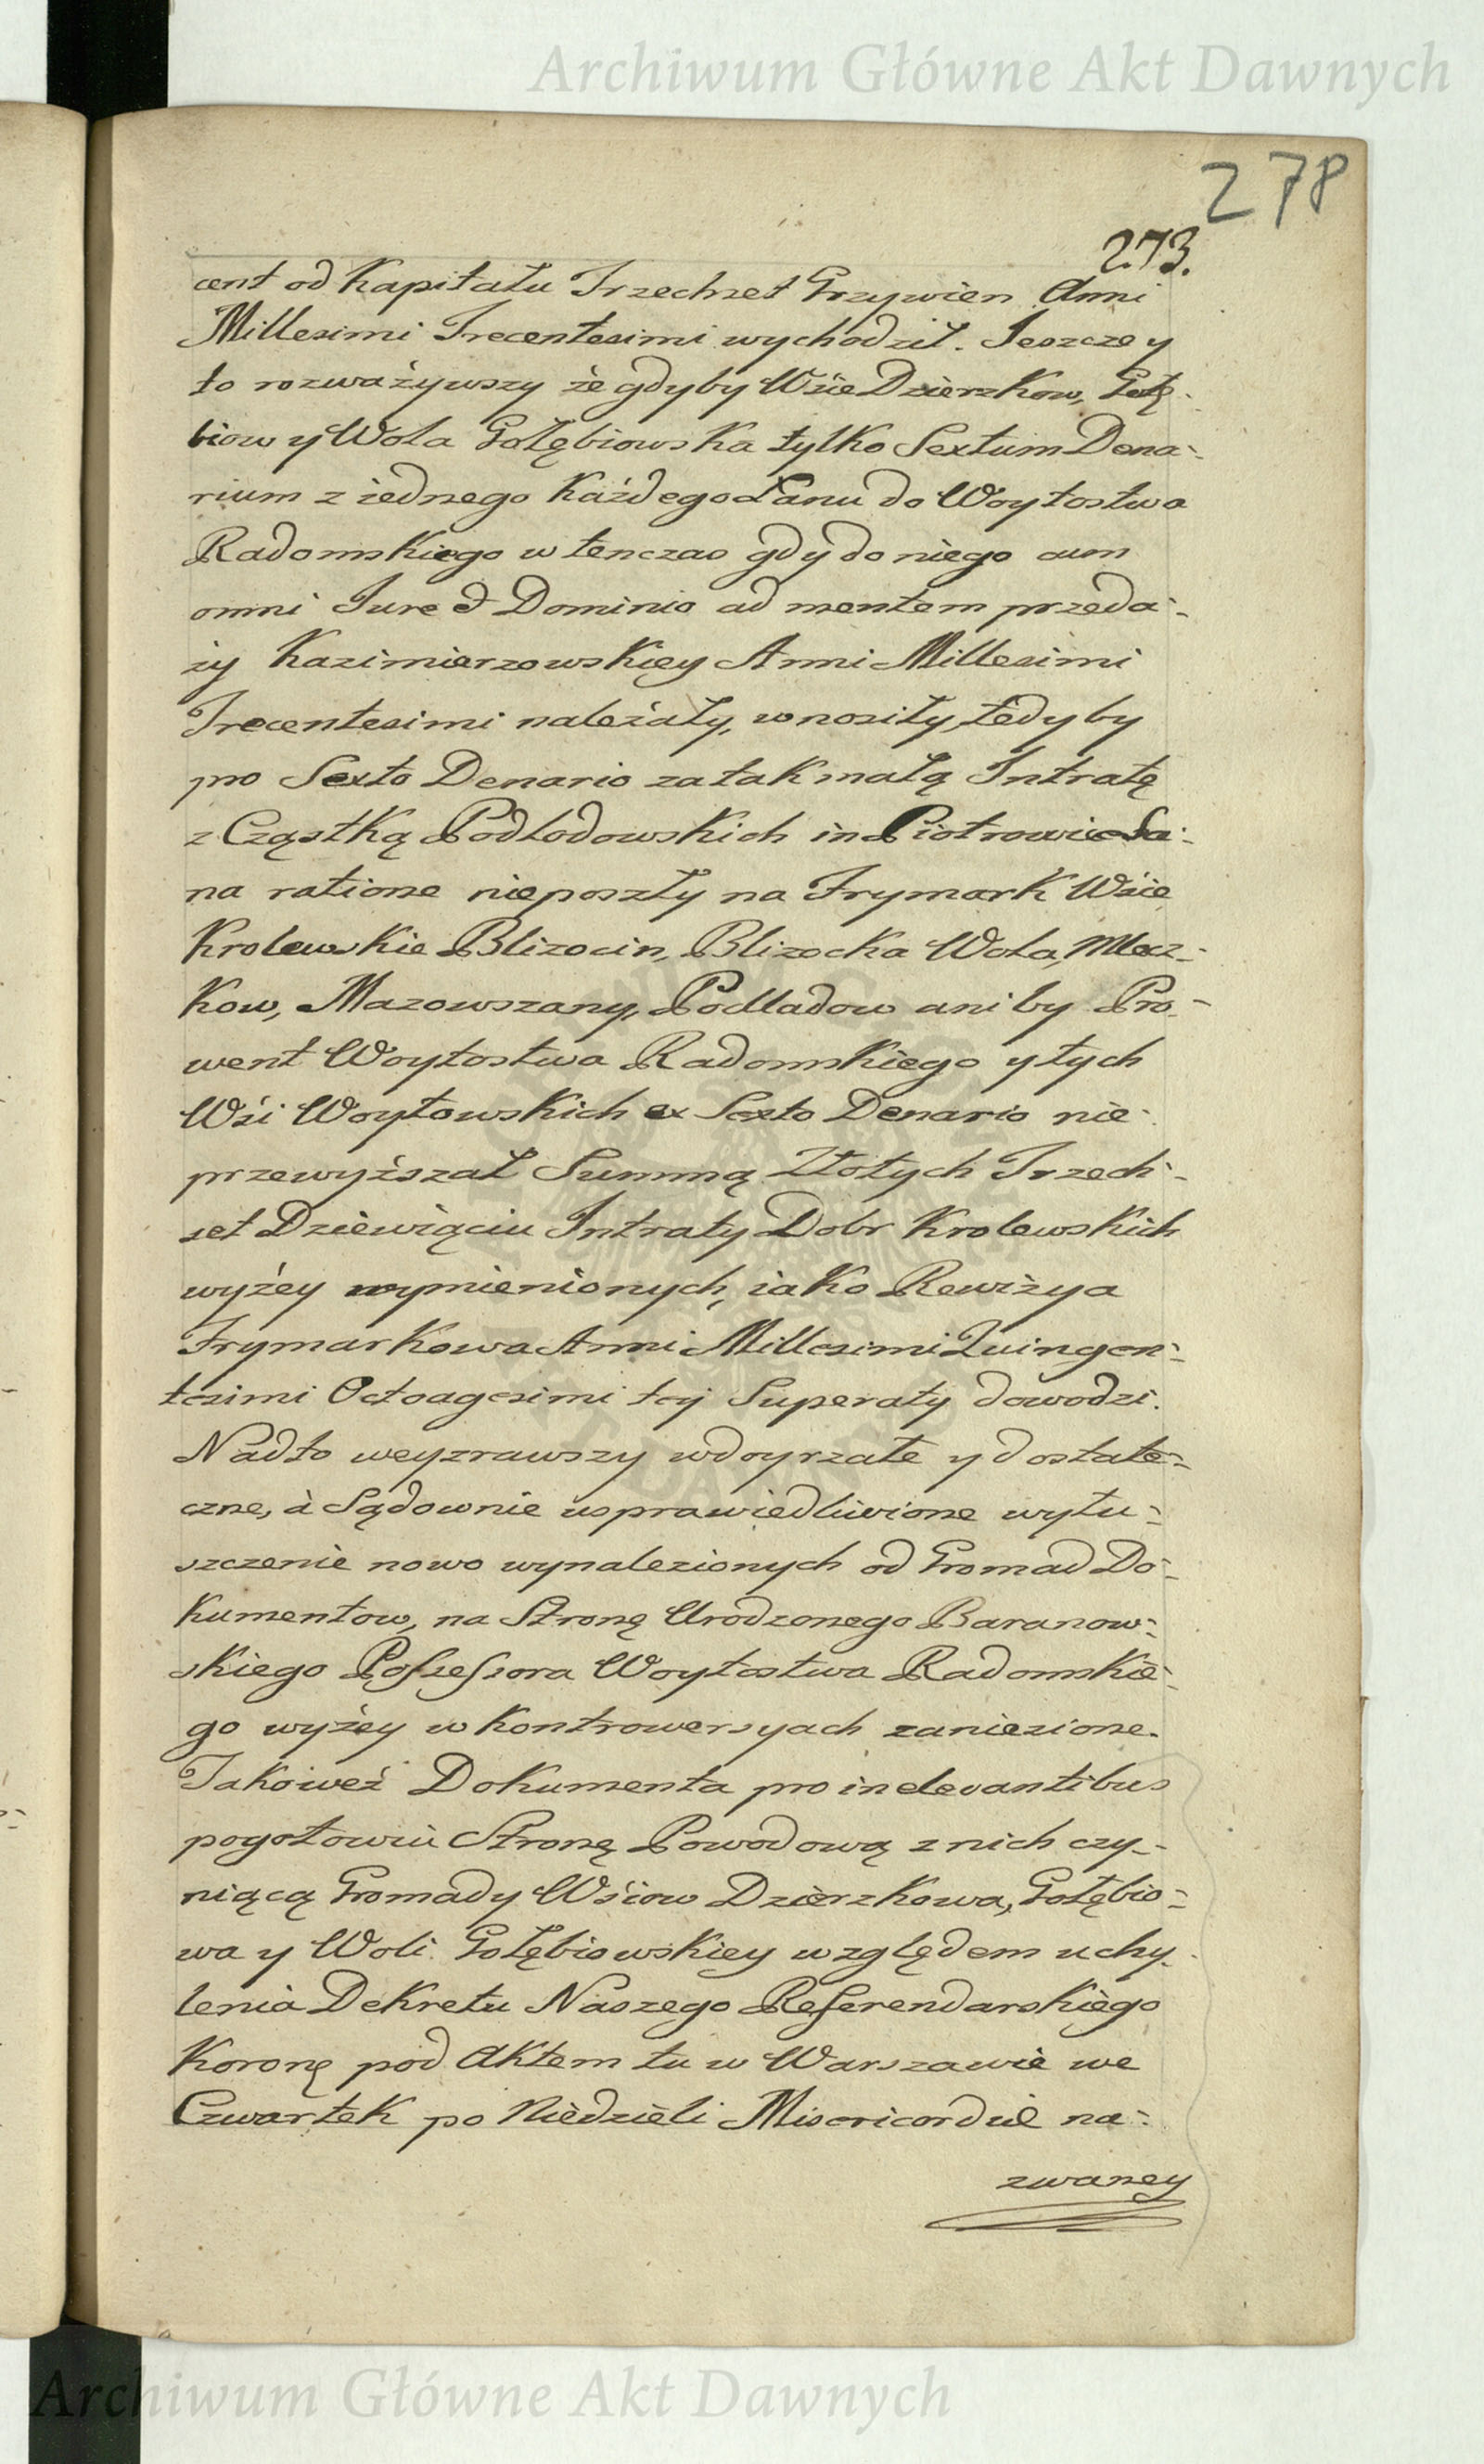 Archiwum Główne Akt Dawnych
278
273.
cent od Kapitału Trzechset Grzywien Anni
Millesimi Trecentesimi wychodził. Jeszcze y
to rozważywszy że gdyby Wsie Dzierzkow, Gołę-
biow y Wola Gołębiowska tylko Sextum Dena-
rium z iednego każdego Łanu do Woytostwa
Radomskiego w tenczas gdy do niego cum
omni Jure et Dominio ad mentem przeda-
ży Kazimierzowskiey Anni Millesimi
Trecentesimi należały, wnosiły, tedy by
pro Sexto Denario za tak małą Intratę
z Cząstką Podlodowskich in Piotrowice Sa-
na ratione nieposzły na Frymark Wsie
Krolewskie Blizocin, Blizocka Wola, Mlecz-
kow, Mazowszany, Podladow ani by Pro-
went Woytostwa Radomskiego y tych
Wsi Woytowskich ex Sexto Denario nie-
przewyższał Summą Złotych Trzech-
set Dziewiąciu Intraty Dobr Krolewskich
wyżey wymienionych, iako Rewizya
Frymarkowa Anni Millesimi Quingen-
tesimi Octoagesimi tey Superaty dowodzi.
Nadto weyzrawszy w doyrzałe y dostate-
czne, à Sądownie usprawiedliwione wytu-
szczenie nowo wynalezionych od Gromad Do-
kumentow, na Stronę Urodzonego Baranow-
skiego Possessora Woytostwa Radomskie-
go wyżey w Kontrowersyach zaniesione.
Jakoweź Dokumenta pro inelevantibus
pogotowiu Stronę Powodową z nich czy-
niącą Gromady Wsiow Dzierzkowa, Gołębio-
wa y Woli Gołębiowskiey względem uchy-
lenia Dekretu Naszego Referendarskiego
Koronę pod Aktem tu w Warszawie we
Czwartek po Niedzieli Misericordiæ na-
zwaney
Archiwum Główne Akt Dawnych